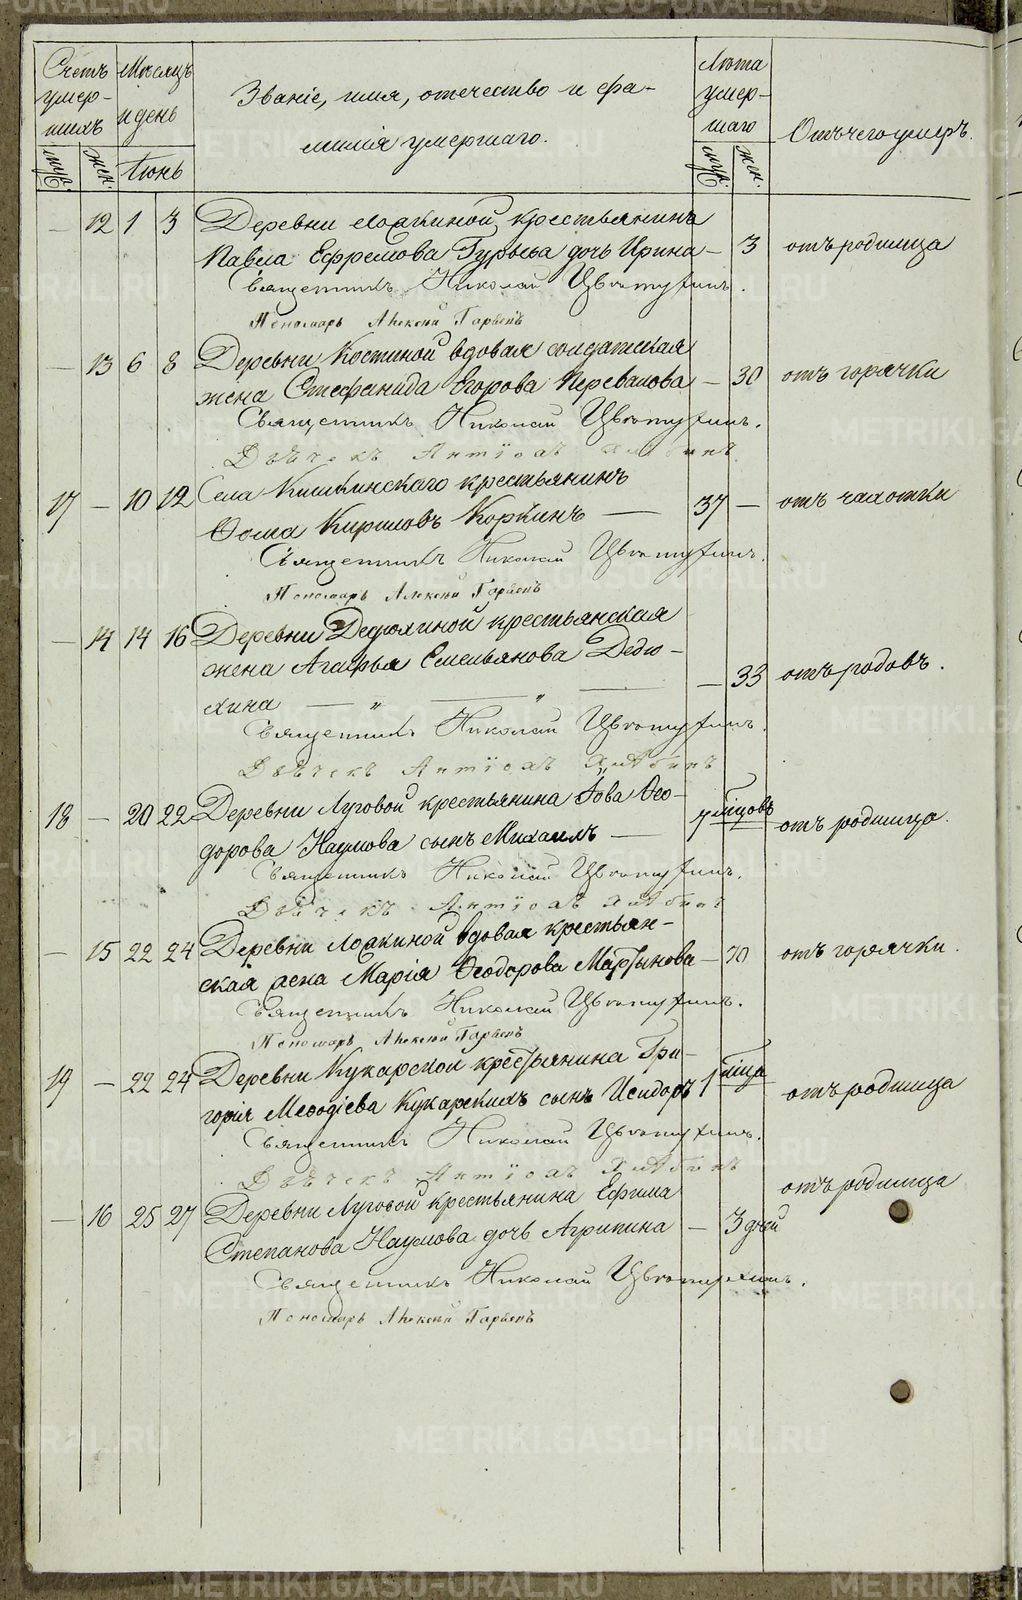 Счетъ умер-
шихъ
Мѣсяцъ
и день
Званіе, имя, отечество и фа-
милія умершаго.
Лѣта
умер-
шаго
Отъ чего умеръ.
муж. жен. Іюнь муж. жен.
— 12 1 3 Деревни крестьянина
Павла Ефремова Гурьева дочь Ирина — 3 отъ родимца
Священникъ Николай
Пономарь Алексей
— 13 6 8 Деревни Костиной вдовая солдатская
жена Стефанида Егорова Перевалова — 30 отъ горячки
Священникъ Николай
Дьячекъ Антіохъ
17 — 10 12 Села крестьянинъ
Фома Кириловъ Коркинъ — 37 — отъ чахотки
Священникъ Николай
Пономарь Алексей
— 14 14 16 Деревни Дедюхиной крестьянская
жена Агафья Емельянова Дедю-
хина — " — " — — 33 отъ родовъ.
Священникъ Николай
Дьячекъ Антіохъ
18 — 20 22 Деревни Луговой крестьянина Іова Ѳео-
дорова Наумова сынъ Михаилъ — 7 мѣсцовъ отъ родимца.
Священникъ Николай
Дьячекъ Антіохъ
— 15 22 24 Деревни вдовая крестьян-
ская жена Марія Ѳеодорова Мартынова — 70 отъ горячки.
Священникъ Николай
Пономарь Алексей
19 — 22 24 Деревни Кукарской крестьянина Гри-
горія Меѳодіева Кукарскихъ сынъ Исидоръ 1 мѣсца отъ родимца
Священникъ Николай
Дьячекъ Антіохъ
— 16 25 27 Деревни Луговой крестьянина Ефима
Степанова Наумова дочь Агрипина — 3 дней отъ родимца
Священникъ Николай
Пономарь Алексей
METRIKI.GASO-URAL.RU